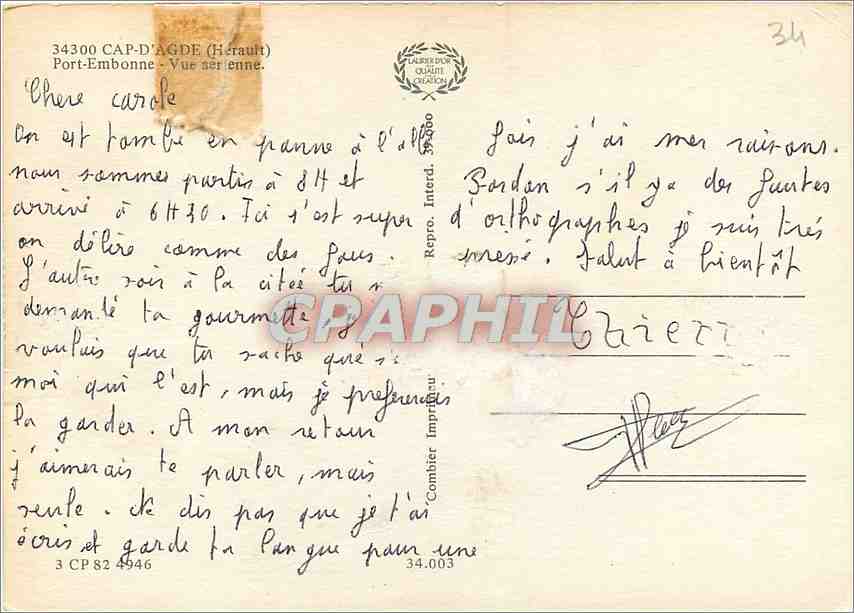 34
34300 CAP-D'AGDE (Hérault)
Port-Embonne - Vue aérienne.
LAURIER D'OR
DE LA
QUALITÉ
CRÉATION
Chere carole
On est tombé en panne à l'all
nous sommes partis à 8H et
arrivé à 6H30. Ici s'est super
on délire comme des fous.
L'autre soir à la citée tu
demanté ta gourmette,
voulais que tu sache que
moi qui l'est, mais je prefererais
la garder. A mon retour
j'aimerais te parler, mais
seule. Ne dis pas que je t'ai
écris et garde ta langue pour une
fois j'ai mes raisons.
Pardon s'il y a des fautes
d'orthographes je suis très
pressé. Salut à bientôt
CPARPHIL
Repro. Interd. 39.000
Combier Imprimeur
3 CP 82 4946
34.003